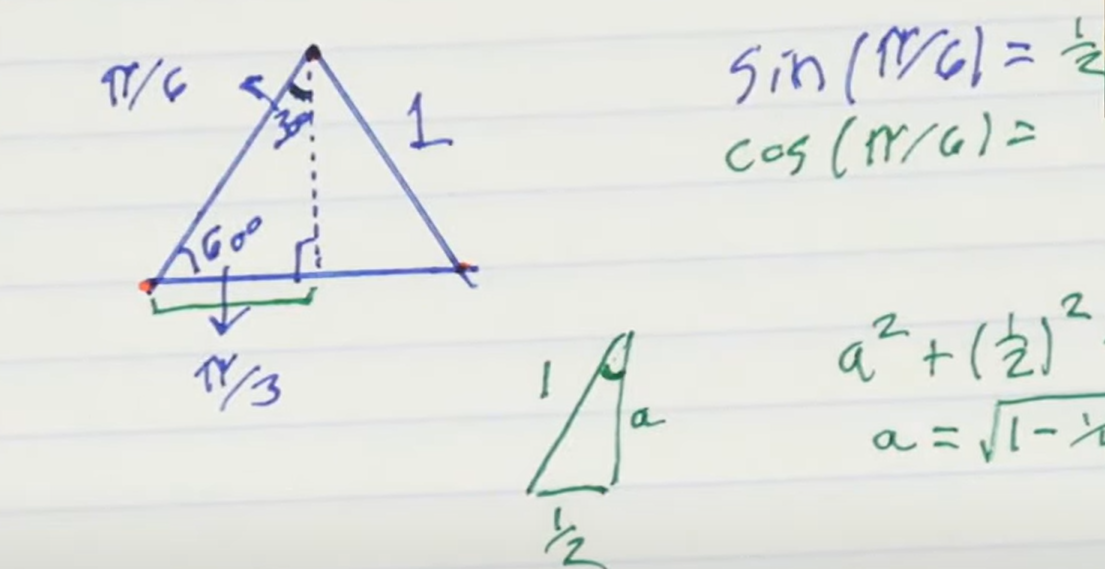 π/6
30°
1
60°
π/3
sin(π/6) = 1/2
cos(π/6) =
1
a
1/2
a² + (1/2)²
a = √1 -